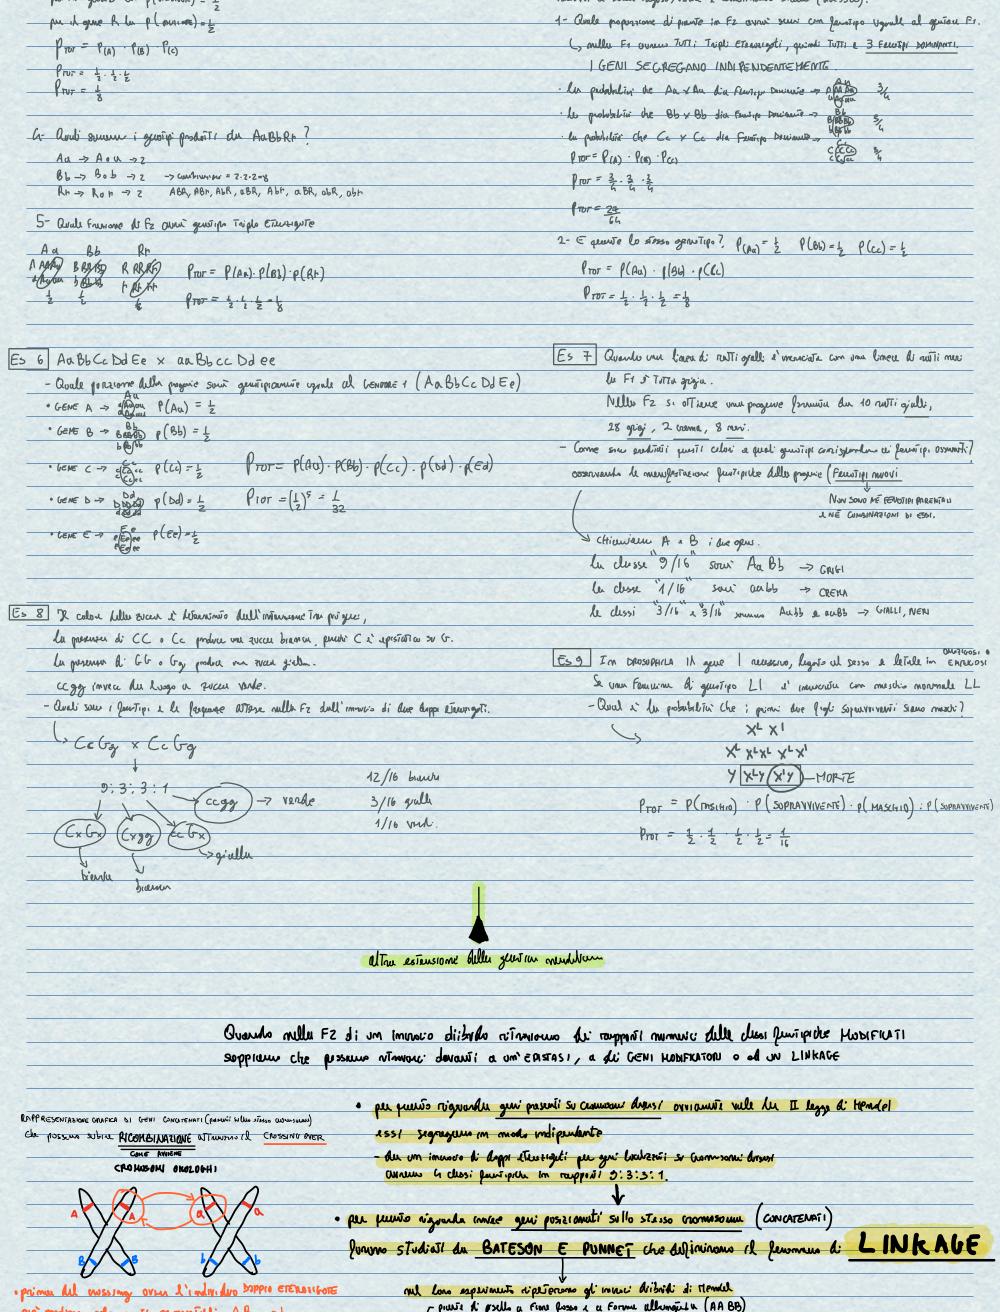 per il gene R ho p(      )=1/2
PTOT = P(A) · P(B) · P(C)
PTOT = 1/2 · 1/2 · 1/2
PTOT = 1/8
4- Quali saranno i gameti prodotti da AaBbRr ?
Aa → A o a → 2
Bb → B o b → 2 → combinazioni = 2·2·2=8
Rr → R o r → 2 ABR, ABr, AbR, aBR, Abr, aBR, abR, abr
5- Quale Frazione di F2 avrà genotipo Triplo Eterozigote
Aa Bb Rr
PTOT = P(Aa) · P(Bb) · p(Rr)
1/2 1/2 1/2 PTOT = 1/2 · 1/2 · 1/2 = 1/8
1- Quale proporzione di piante in F2 avrà semi con fenotipo uguale al genitore F1.
↳ nella F1 avremo TUTTI Tripli Eterozigoti, quindi TUTTI e 3 FENOTIPI DOMINANTI.
I GENI SEGREGANO INDIPENDENTEMENTE
· la probabilità che Aa x Aa dia Fenotipo Dominante → 3/4
· la probabilità che Bb x Bb dia Fenotipo Dominante → 3/4
· la probabilità che Cc x Cc dia Fenotipo Dominante → 3/4
PTOT = P(A) · P(B) · P(C)
PTOT = 3/4 · 3/4 · 3/4
PTOT = 27/64
2- E quante lo stesso genotipo? P(Aa) = 1/2 P(Bb) = 1/2 P(Cc) = 1/2
PTOT = p(Aa) · p(Bb) · p(Cc)
PTOT = 1/2 · 1/2 · 1/2 = 1/8
Es 6 AaBbCcDdEe x aaBbccDdee
- Quale porzione della progenie sarà genotipicamente uguale al GENITORE 1 (AaBbCcDdEe)
• GENE A → P(Aa) = 1/2
• GENE B → p(Bb) = 1/2
• GENE C → p(Cc) = 1/2 PTOT = P(Aa) · P(Bb) · p(Cc) · p(Dd) · p(Ed)
• GENE D → p(Dd) = 1/2 PTOT = (1/2)^5 = 1/32
• GENE E → p(Ee) = 1/2
Es 7 Quando una linea di ratti gialli è incrociata con una linea di ratti neri
la F1 è Tutta grigia.
Nella F2 si ottiene una progenie formata da 10 ratti gialli,
28 grigi, 2 crema, 8 neri.
- Come sono ereditati questi colori e quali genotipi corrispondono ai fenotipi osservati?
osservando la manifestazione fenotipica della progenie (FENOTIPI NUOVI
NON SONO NÉ FENOTIPI PARENTALI
E NÉ COMBINAZIONI DI ESSI.
→ chiamiamo A e B i due geni.
la classe "9/16" sarà AaBb → GRIGI
la classe "1/16" sarà aabb → CREMA
le classi "3/16" e "3/16" saranno Aabb e aaBb → GIALLI, NERI
Es 8 Il colore delle zucche è determinato dall'interazione tra più geni,
la presenza di CC o Cc produce una zucca bianca, perché C è epistatico su G.
la presenza di GG o Gg produce una zucca gialla.
ccgg invece da luogo a zucca verde.
- Quali sono i fenotipi e le frequenze attese nella F2 dall'incrocio di due doppi eterozigoti.
↳ CcGg x CcGg
9:3:3:1
ccgg → verde
CxGx Cxgg ccGx
bianca bianca → gialla
12/16 bianche
3/16 gialle
1/16 verdi.
Es 9 In DROSOPHILA il gene l recessivo, legato al sesso e letale in OMOZIGOSI o EMIZIGOSI
Se una Femmina di genotipo Ll è incrociata con maschio normale LL
- Qual è la probabilità che i primi due figli sopravvissuti siano maschi?
XL Xl
XL XLXL XLXl
Y XLY XlY — MORTE
PTOT = P(MASCHIO) · P(SOPRAVVIVENTE) · p(MASCHIO) · P(SOPRAVVIVENTE)
PTOT = 1/2 · 1/2 · 1/2 · 1/2 = 1/16
altra estensione della genetica mendeliana
Quando nella F2 di un incrocio diibrido ritroviamo dei rapporti numerici delle classi fenotipiche MODIFICATI
sappiamo che possiamo ritrovarci davanti a un'EPISTASI, a dei GENI MODIFICATORI o ad un LINKAGE
• per quanto riguarda geni presenti su cromosomi diversi ovviamente vale la II legge di Mendel
essi segregano in modo indipendente
- da un incrocio di doppi eterozigoti per geni localizzati su cromosomi diversi
avremo 4 classi fenotipiche in rapporti 9:3:3:1.
• per quanto riguarda invece geni posizionati sullo stesso cromosoma (CONCATENATI)
furono studiati da BATESON E PUNNET che definirono il fenomeno di LINKAGE
nel loro esperimento ripeterono gli incroci diibridi di Mendel
piante di pisello a Fiore Rosso e a Forma allungata (AA BB)
RAPPRESENTAZIONE GRAFICA DI GENI CONCATENATI (presenti sullo stesso cromosoma)
che possono subire RICOMBINAZIONE attraverso il CROSSING OVER
COME AVVIENE
CROMOSOMI OMOLOGHI
A A a a
B B b b
• prima del crossing over l'individuo DOPPIO ETEROZIGOTE